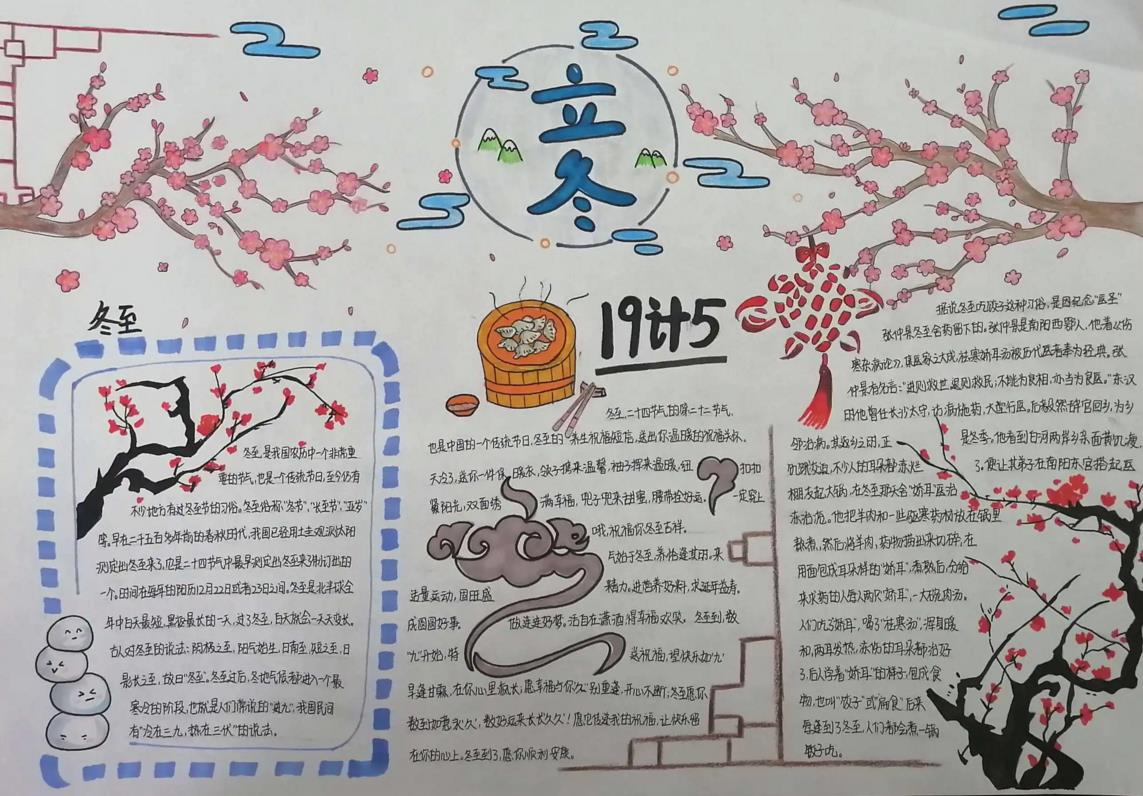 立冬
冬至
冬至，是我国农历中一个非常重
要的节气，也是一个传统节日，至今仍有
不少地方有过冬至节的习俗。冬至俗称"冬节"、"长至节"、"亚岁"
等。早在二千五百多年前的春秋时代，我国已经用土圭观测太阳
测定出冬至来了，它是二十四节气中最早测定出冬至来制订出的
一个。时间在每年的阳历12月22日或者23日之间。冬至是北半球全
年中白天最短、黑夜最长的一天，过了冬至，白天就会一天天变长。
古人对冬至的说法：阴极之至，阳气始生，日南至，短之至，日
影长之至，故曰"冬至。冬至过后，各地气候都进入一个最
寒冷的阶段，也就是人们常说的"进九"，我国民间
有"冷在三九，热在三伏"的说法。
19计5
冬至，二十四节气的第二十二节气，
也是中国的一个传统节日，冬至的
祝福短信，送出你温暖的祝福关怀。
天冷，送你一件
暖衣，领子携来温馨，袖子挥来温暖，纽
扣扣
紧阳光，双面绣
满幸福，兜子兜来甜蜜，腰带拴好运。
一定穿上
哦，祝福你冬至吉祥。
气始于冬至，养怡逢其时，来
适量运动，固旺盛
精力，进营养好料，求延年益寿。
成圆圆好事。
做连连好梦。活自在潇洒，得幸福欢笑。冬至到，数
"九"开始，特
送祝福，望快乐如"九"
早逢甘霖，在你心里
长，愿幸福与你"久"别重逢，开心不断，冬至愿你
数到如意永"久"，数好运来长长久久"！愿它传递我的祝福，让快乐留
在你的心上，冬至到了，愿你顺利安康。
据说冬至吃饺子这种习俗，是因纪念"医圣"
张仲景冬至舍药留下的。张仲景是南阳西鄂人，他著《伤
寒杂病论》，集医家之大成，祛寒娇耳汤被历代医者奉为经典。张
仲景有名言："进则救世，退则救民；不能为良相，亦当为良医。"东汉
时他曾任长沙太守，访病施药，大堂行医。后毅然辞官回乡，为乡
邻治病。其返乡之时，正
是冬季。他看到白河两岸乡亲面黄肌瘦，
饥寒交迫，不少人的耳朵都冻烂
了。便让其弟子在南阳东关搭起医
棚支起大锅，在冬至那天舍"娇耳"医治
冻疮。他把羊肉和一些驱寒药材放在锅里
熬煮，然后将羊肉、药物捞出来切碎，在
用面包成耳朵样的"娇耳"，煮熟后，分给
来求药的人每人两只"娇耳"，一大碗肉汤。
人们吃了"娇耳"，喝了"祛寒汤"，浑身暖
和，两耳发热，冻伤的耳朵都治好
了。后人学着"娇耳"的样子，包成食
物，也叫"饺子"或"扁食"后来
每逢到了冬至，人们都会煮一锅
饺子吃。